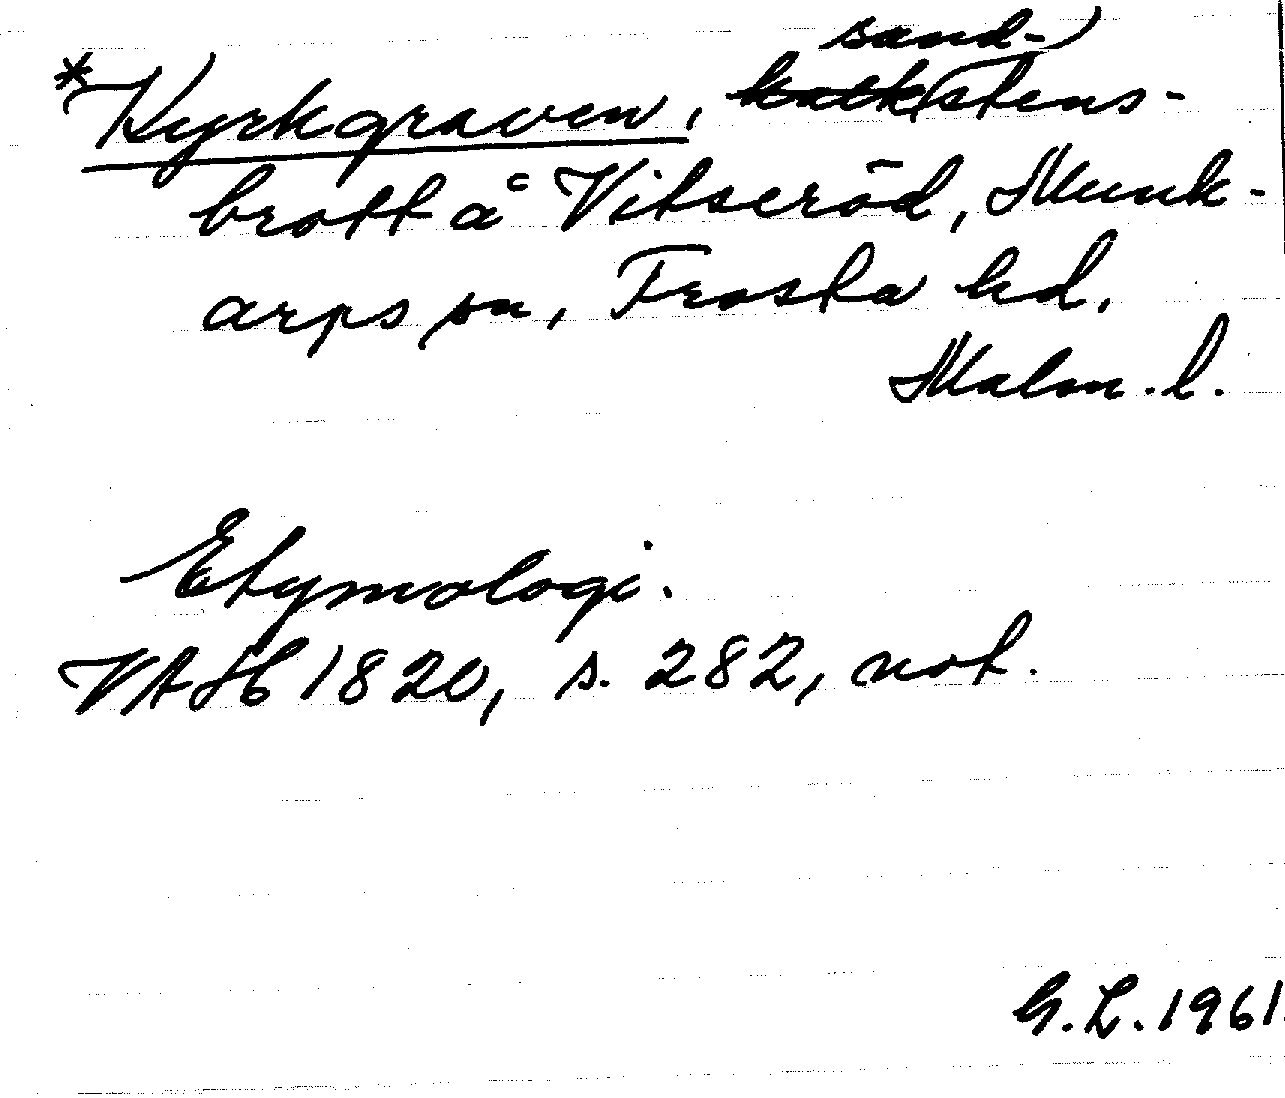 sand-
*Kyrkgraven, kalkstens-
brott å Vitseröd, Munk-
arps sn, Frosta hd.
Malm. l.
Etymologi.
VAH 1820, s. 282, not.
G.L. 1961.